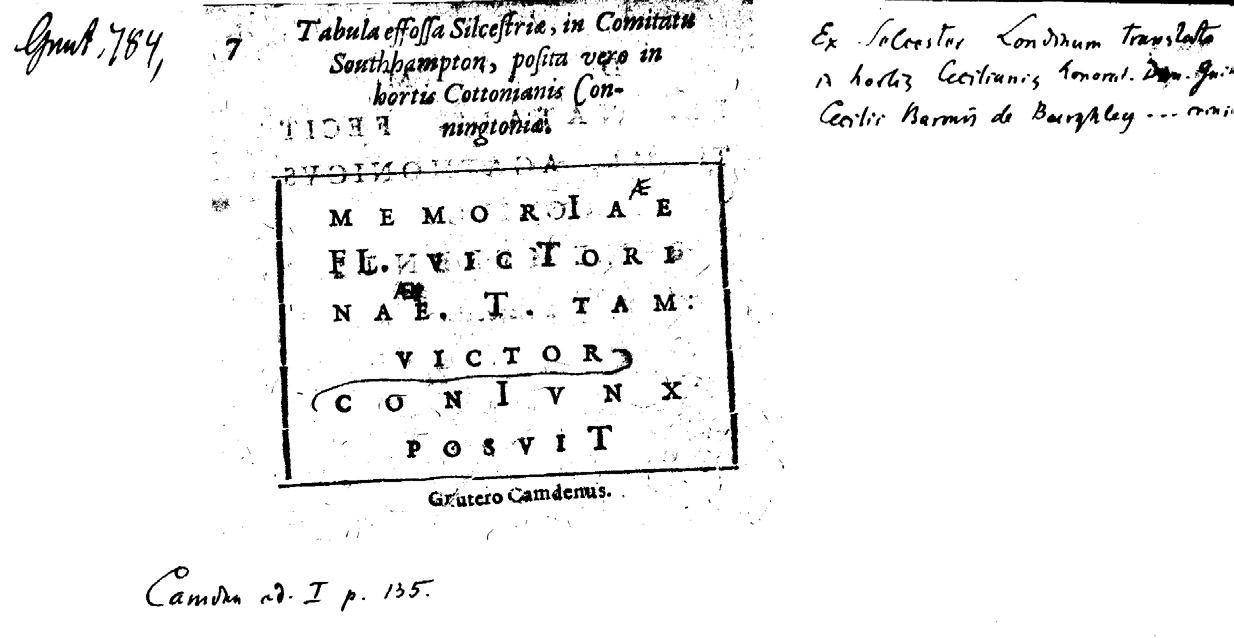 Grut. 784,
7
Tabula effossa Silcestriæ, in Comitatu
Southhampton, posita vero in
hortis Cottonianis Con-
ningtoniæ.
MEMORIAE
Æ
FL. VICTORI
NAE. T. TAM:
Æ
VICTOR
CONIVNX
POSVIT
Grutero Camdenus.
Ex Silcester Londinum translata
in hortis Cecilianis honorat. Dom.
Cecilii Baronis de Burghley ...
Camden ed. I p. 135.